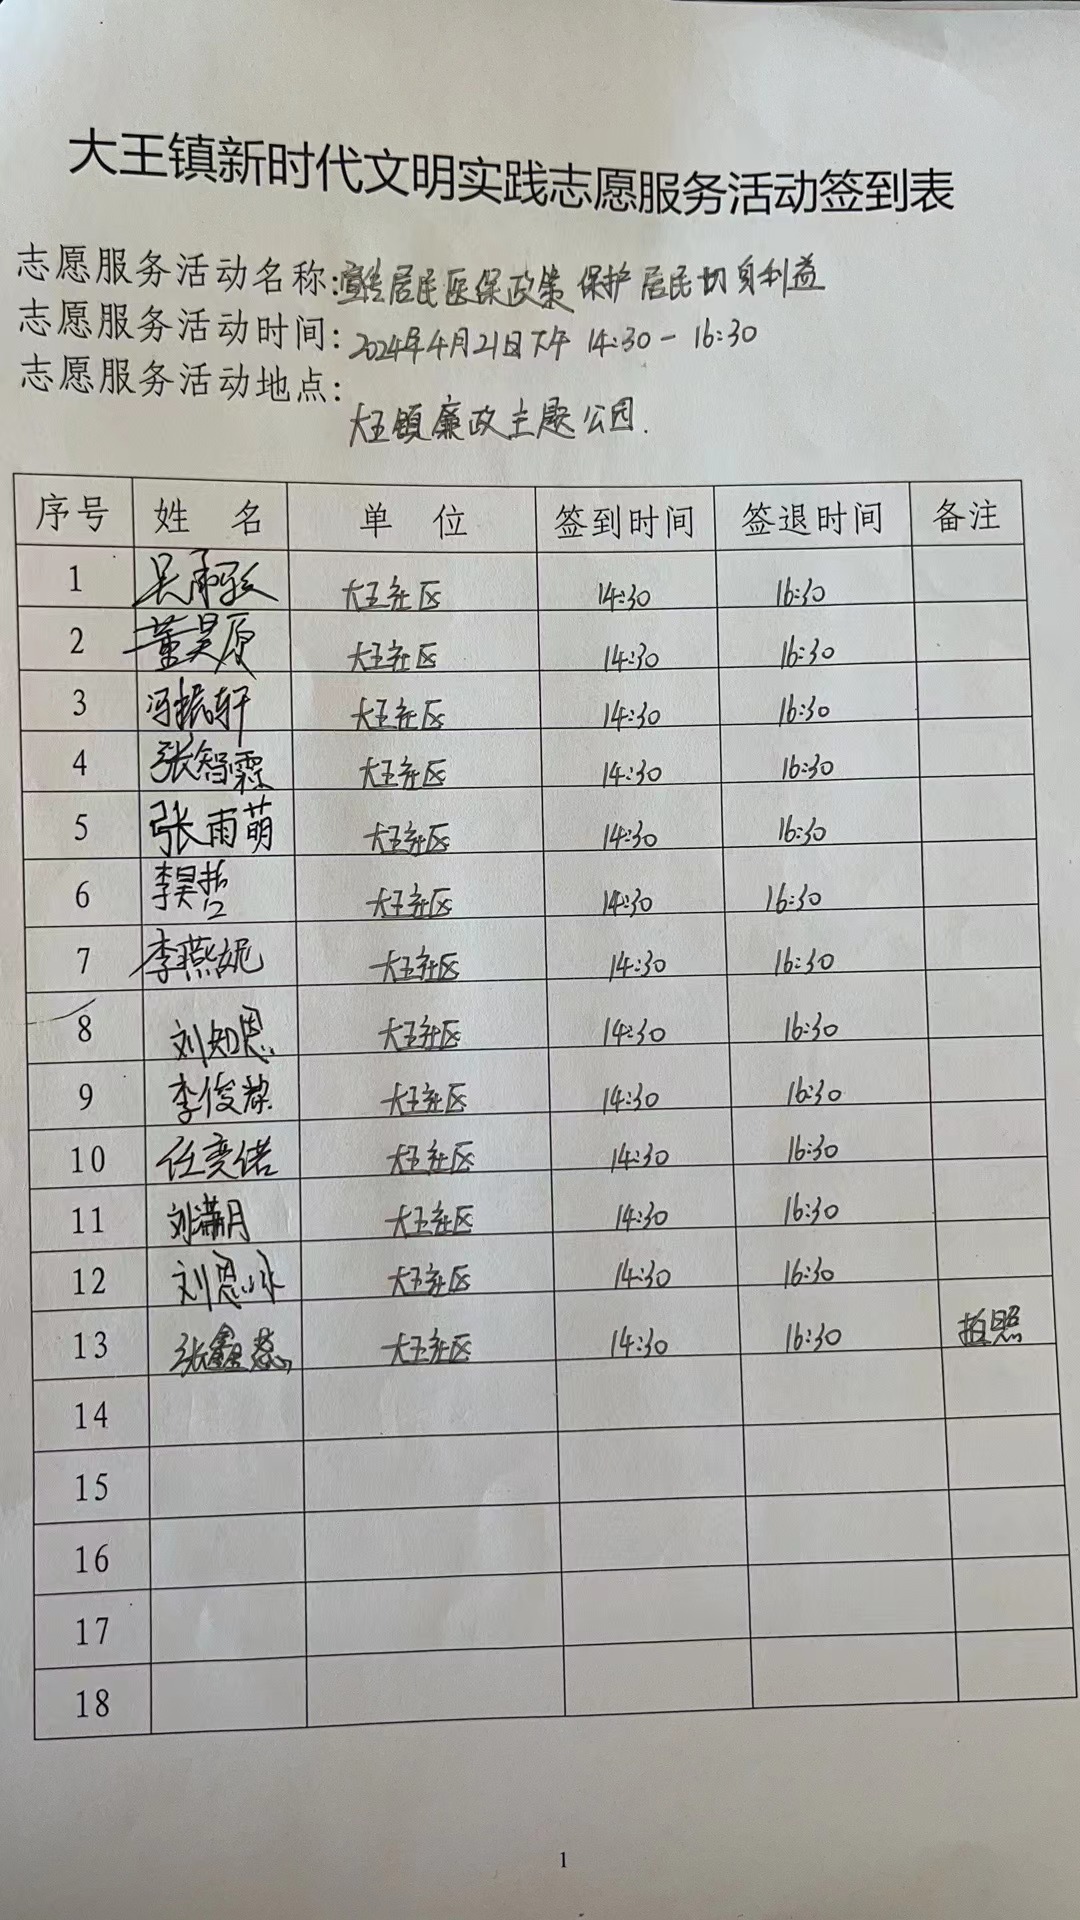 大王镇新时代文明实践志愿服务活动签到表
志愿服务活动名称:宣传居民医保政策 保护居民切身利益
志愿服务活动时间: 2024年4月21日下午 14:30-16:30
志愿服务活动地点:
大王镇廉政主题公园.
序号 姓 名 单 位 签到时间 签退时间 备注
1 吴 大王社区 14:30 16:30
2 董昊原 大王社区 14:30 16:30
3 冯振轩 大王社区 14:30 16:30
4 张智霖 大王社区 14:30 16:30
5 张雨萌 大王社区 14:30 16:30
6 李昊哲 大王社区 14:30 16:30
7 李燕妮 大王社区 14:30 16:30
8 刘知恩 大王社区 14:30 16:30
9 李俊 大王社区 14:30 16:30
10 任奕诺 大王社区 14:30 16:30
11 刘满月 大王社区 14:30 16:30
12 刘恩泳 大王社区 14:30 16:30
13 张鑫蕊 大王社区 14:30 16:30 拍照
14
15
16
17
18
1